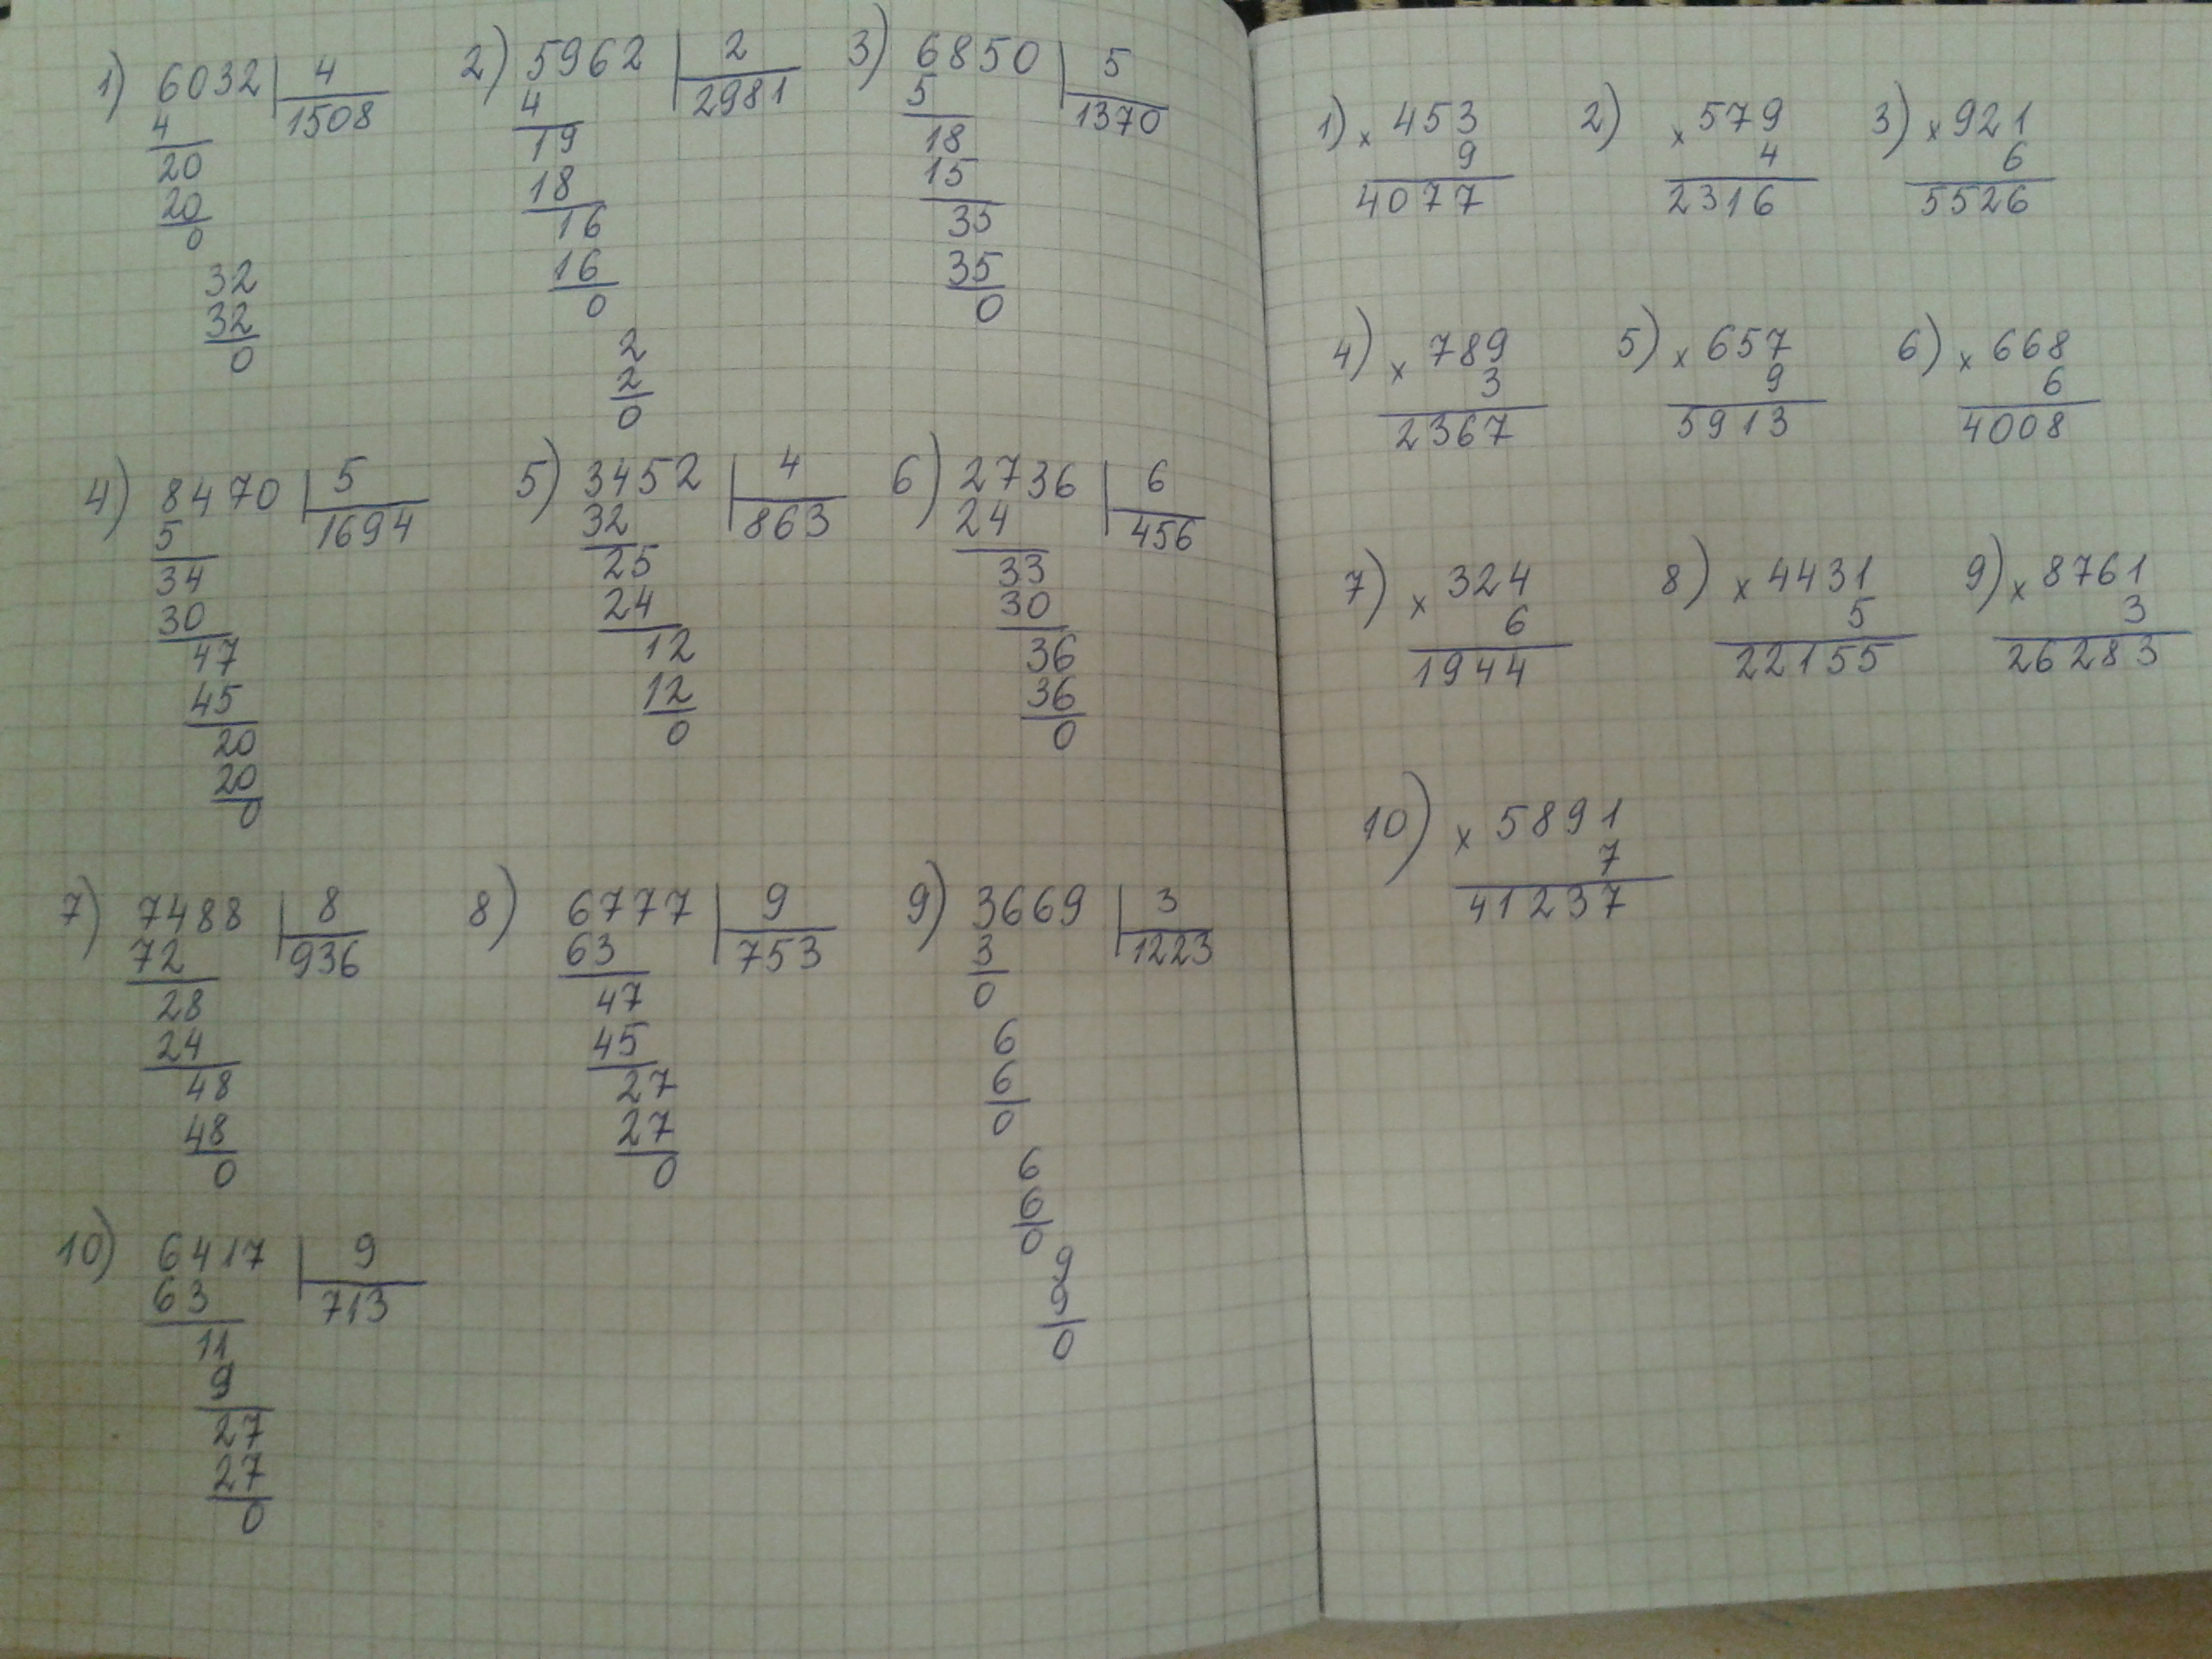 1) 6032 | 4
4 1508
20
20
0
32
32
0
2) 5962 | 2
4 2981
19
18
16
16
0
2
2
0
3) 6850 | 5
5 1370
18
15
35
35
0
4) 8470 | 5
5 1694
34
30
47
45
20
20
0
5) 3452 | 4
32 863
25
24
12
12
0
6) 2736 | 6
24 456
33
30
36
36
0
7) 7488 | 8
72 936
28
24
48
48
0
8) 6777 | 9
63 753
47
45
27
27
0
9) 3669 | 3
3 1223
0
6
6
0
6
6
0
9
9
0
10) 6417 | 9
63 713
11
9
27
27
0
1) x 453
9
4077
2) x 579
4
2316
3) x 921
6
5526
4) x 789
3
2367
5) x 657
9
5913
6) x 668
6
4008
7) x 324
6
1944
8) x 4431
5
22155
9) x 8761
3
26283
10) x 5891
7
41237